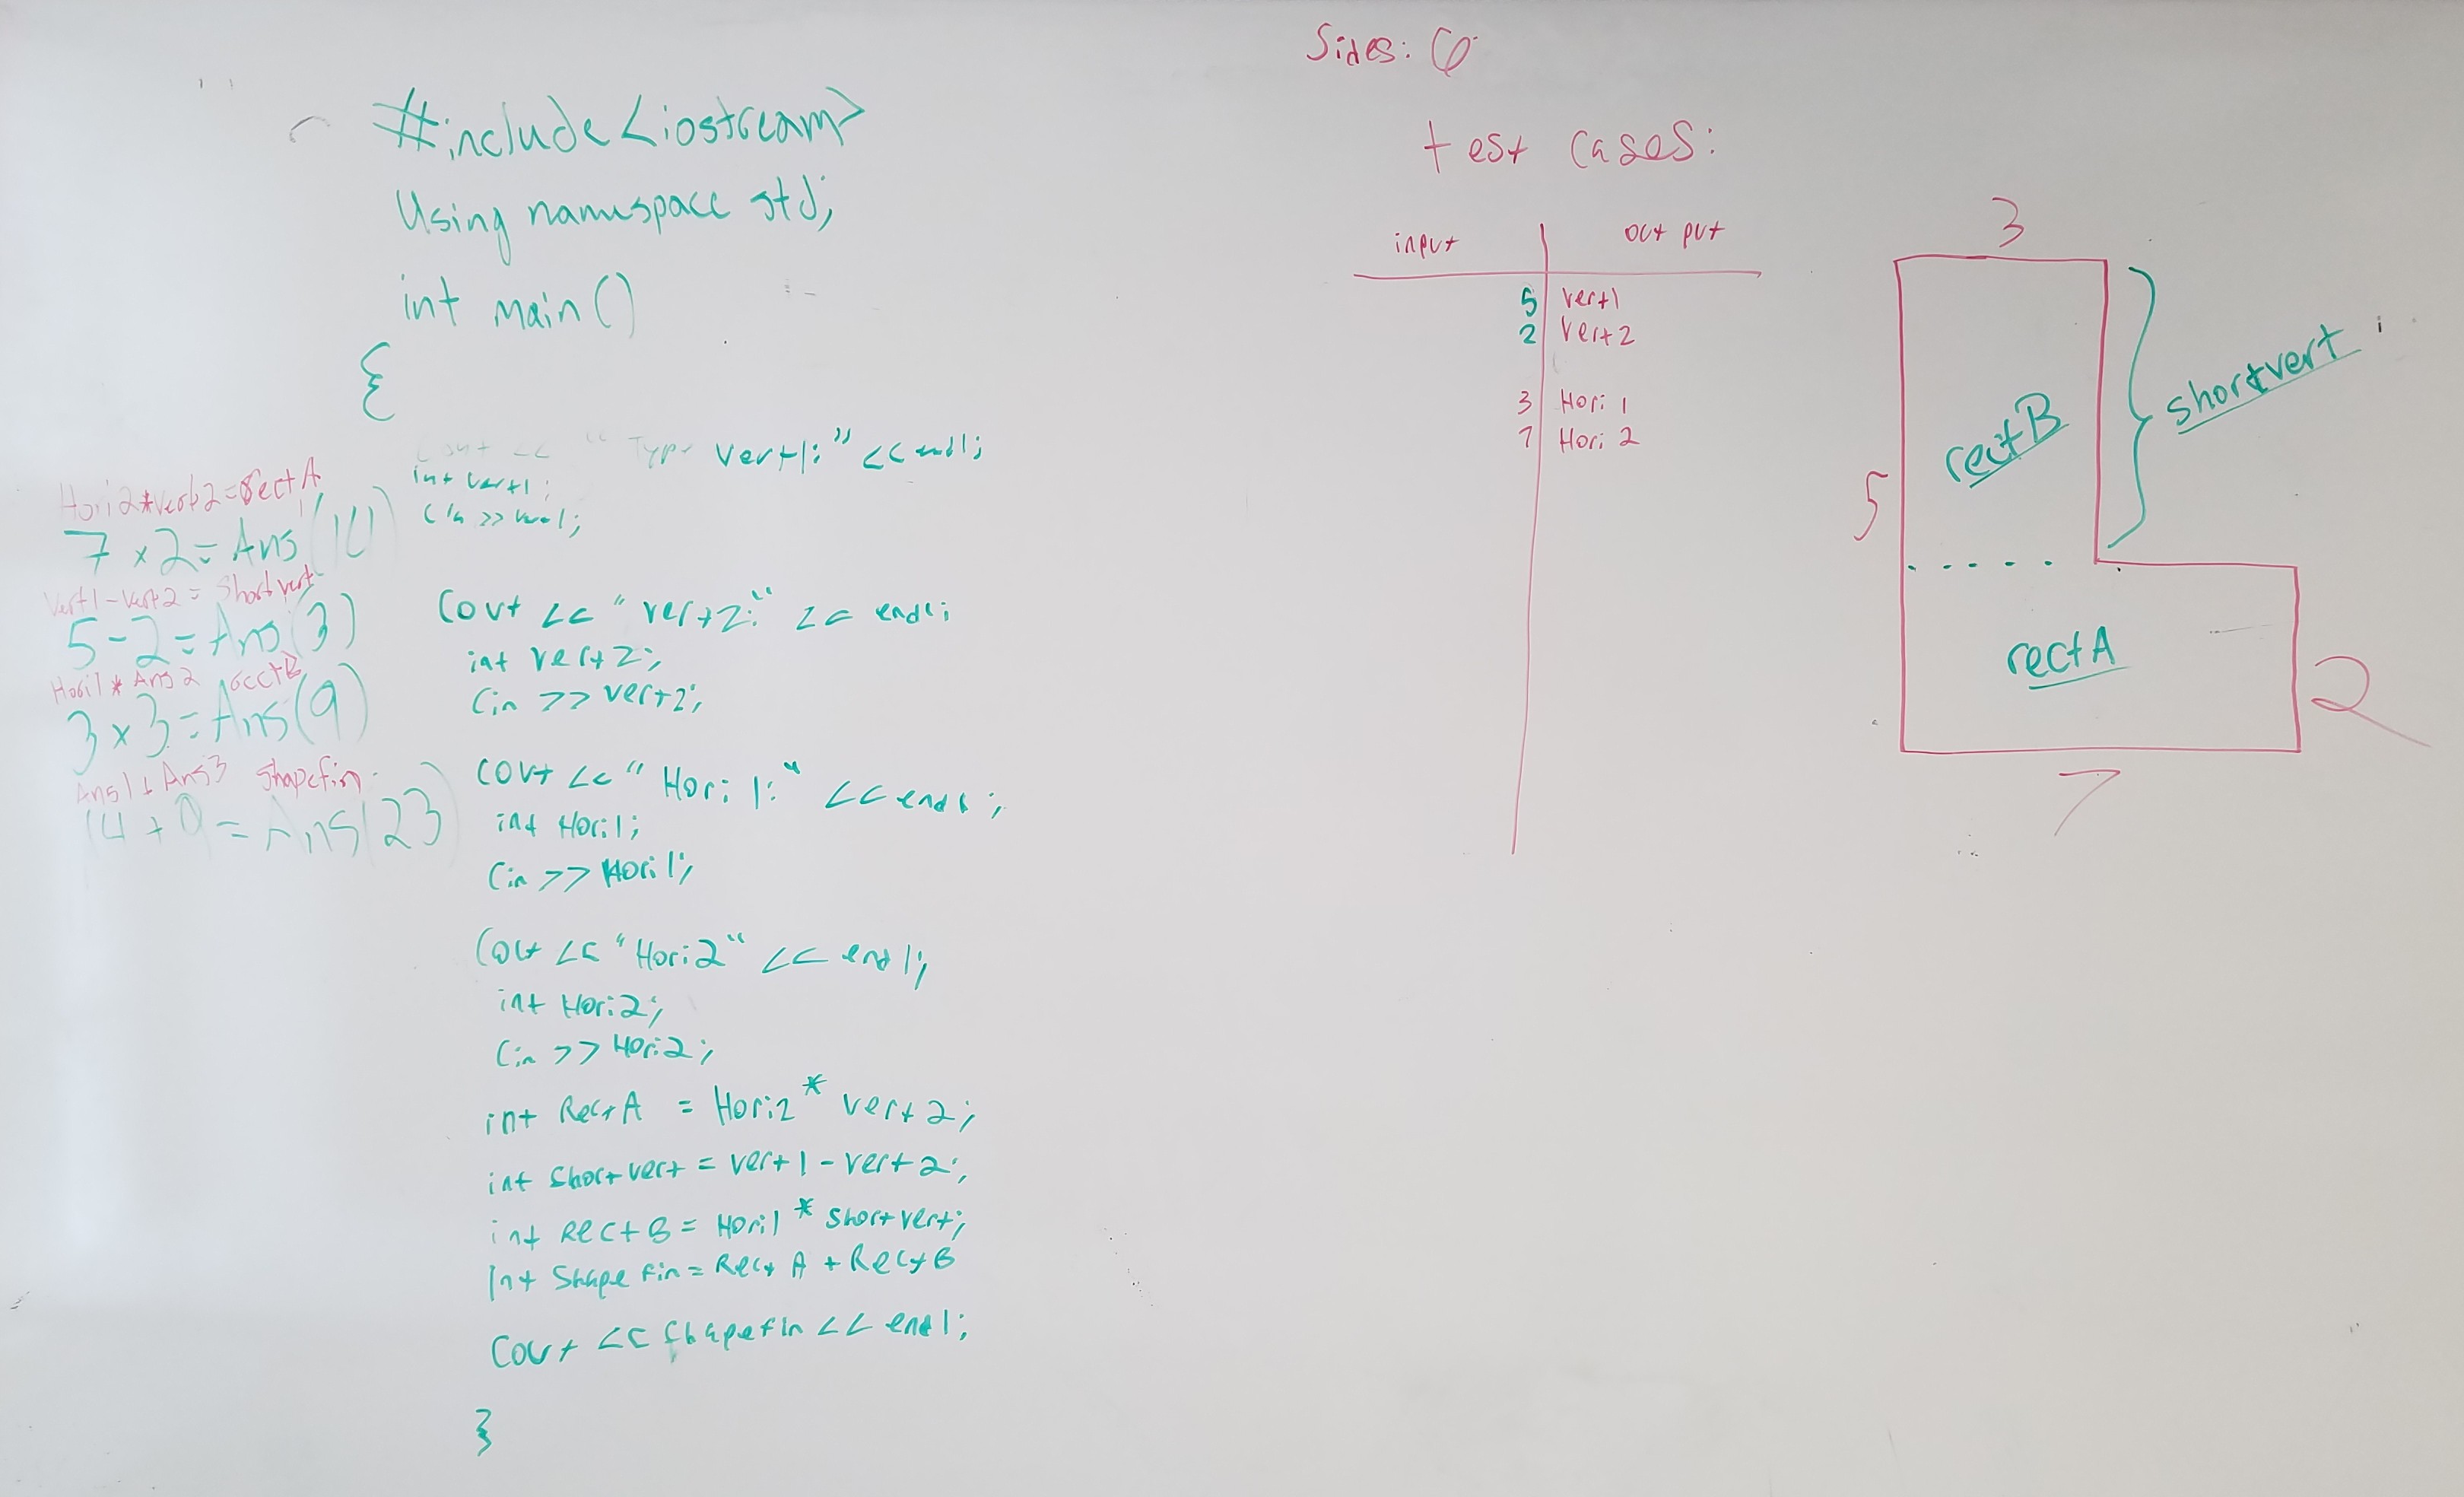 #include<iostream>
Using namespace std;
int main()
{
Cout << "Type vert1:" << endl;
int vert1;
Cin >> vert1;
Cout << "vert2:" << endl;
int vert2;
Cin >> vert2;
Cout << "Hori1:" << endl;
int Hori1;
Cin >> Hori1;
Cout << "Hori2" << endl;
int Hori2;
Cin >> Hori2;
int RectA = Hori2 * vert2;
int Shortvert = vert1 - vert2;
int RectB = Hori1 * Shortvert;
Int Shapefin = RectA + RectB
Cout << Shapefin << endl;
}
Hori2*vert2=RectA
7 x 2 = Ans(14)
Vert1-Vert2 = Shortvert
5 - 2 = Ans(3)
Hori1 * Ans2 rectB
3 x 3 = Ans(9)
Ans1 + Ans3 Shapefin
14 + 9 = Ans(23)
Sides: 6
test cases:
input output
5 vert1
2 Vert2
3 Hori1
7 Hori2
3
shortvert
rectB
5
rectA
2
7